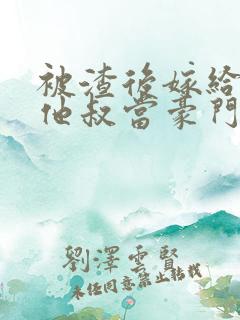 被渣後嫁給
他叔當豪門
劉澤雲賢
未經同意禁止轉載